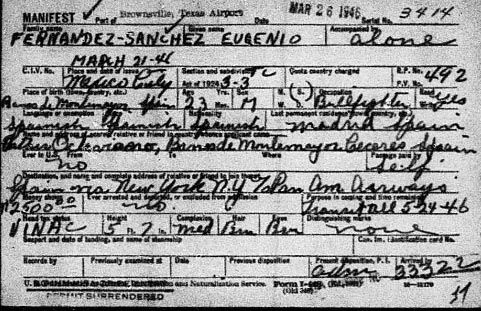 MANIFEST Port of Brownsville, Texas Airport Date MAR 26 1946 Serial No. 3414
Family name Given name Accompanied by
FERNANDEZ-SANCHEZ EUGENIO alone
MARCH 21-46
C.I.V. No. Place and date of issue Section and subdivision Quota country charged R.P. No. 492
Act of 1924 3-3 P.V. No.
Place of birth (town, country) Age Yrs. Sex (S.) Occupation Read yes
Spain 23 M Bullfighter
Language or exemption Nationality Last permanent residence (town, country, etc.)
Spanish Spanish Madrid Spain
Name and address of nearest relative or friend in country whence applicant came
Caceres Spain
Ever in U.S. From To Where Passage paid by
no Self
Destination, and name and complete address of relative or friend to join there
Spain via New York N.Y. Pan Am Airways
Money shown Ever arrested and deported, or excluded from admission Purpose in coming and time remaining
$2500 no Transit 5-24-46
Head tax status Height Complexion Hair Eyes Distinguishing marks
5 Ft. 7 in. Med none
Seaport and date of landing, and name of steamship Can. Im. Identification card No.
Records by Previously examined at Date Previous disposition Present disposition, P.I. Arrived by
Adm 33322
and Naturalization Service. Form
PERMIT SURRENDERED